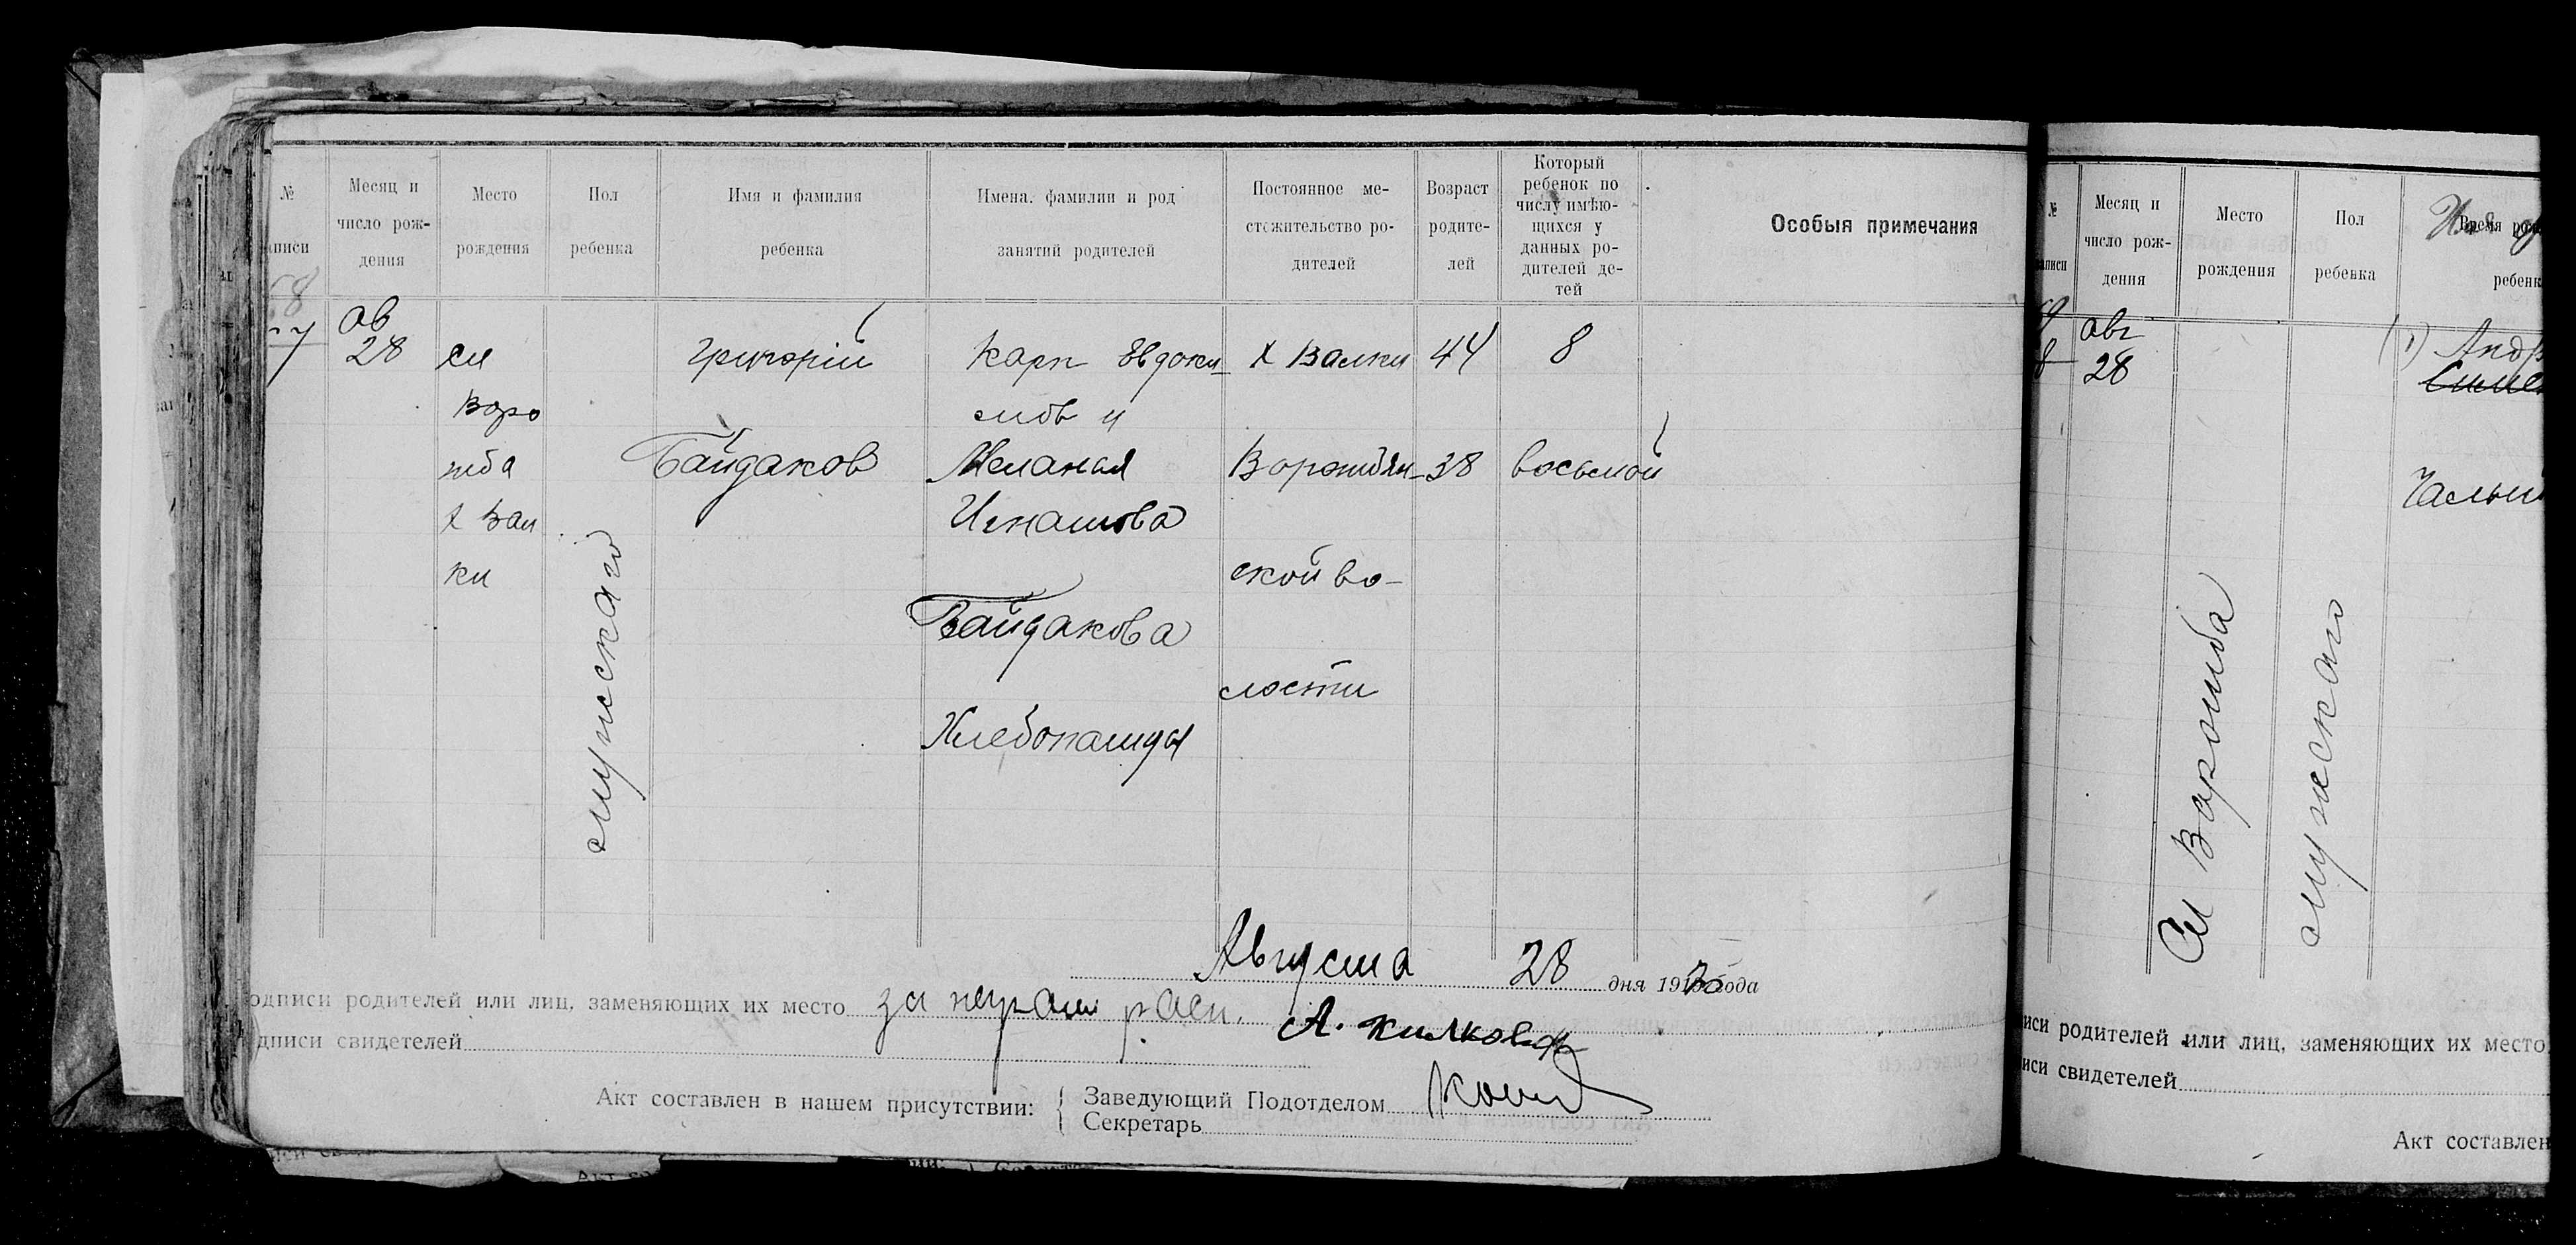 №
записи
Месяц и
число рож-
дения
Место
рождения
Пол
ребенка
Имя и фамилия
ребенка
Имена, фамилии и род
занятий родителей
Постоянное ме-
стожительство ро-
дителей
Возраст
родите-
лей
Который
ребенок по
числу имѣю-
щихся у
данных ро-
дителей де-
тей
Особыя примечания
68
7
ав
28
сл
Воро
жба
х Вал
ки
мужскаго
Григорій
Байдаков
Карп Евдоки-
мов и
Меланья
Игнатова
Байдакова
Хлебопашцы
х Валки
Ворожбян-
ской во-
лости
44
38
8
восьмой
Августа 28 дня 19 года
одписи родителей или лиц, заменяющих их место за неграм расп. А.
дписи свидетелей
Акт составлен в нашем присутствии:
Заведующий Подотделом
Секретарь
№
аписи
8
Месяц и
число рож-
дения
авг
28
Место
рождения
Сл Ворожба
Пол
ребенка
мужскаго
Время
ребенк
1) Андр
иси родителей или лиц, заменяющих их место
иси свидетелей
Акт составлен